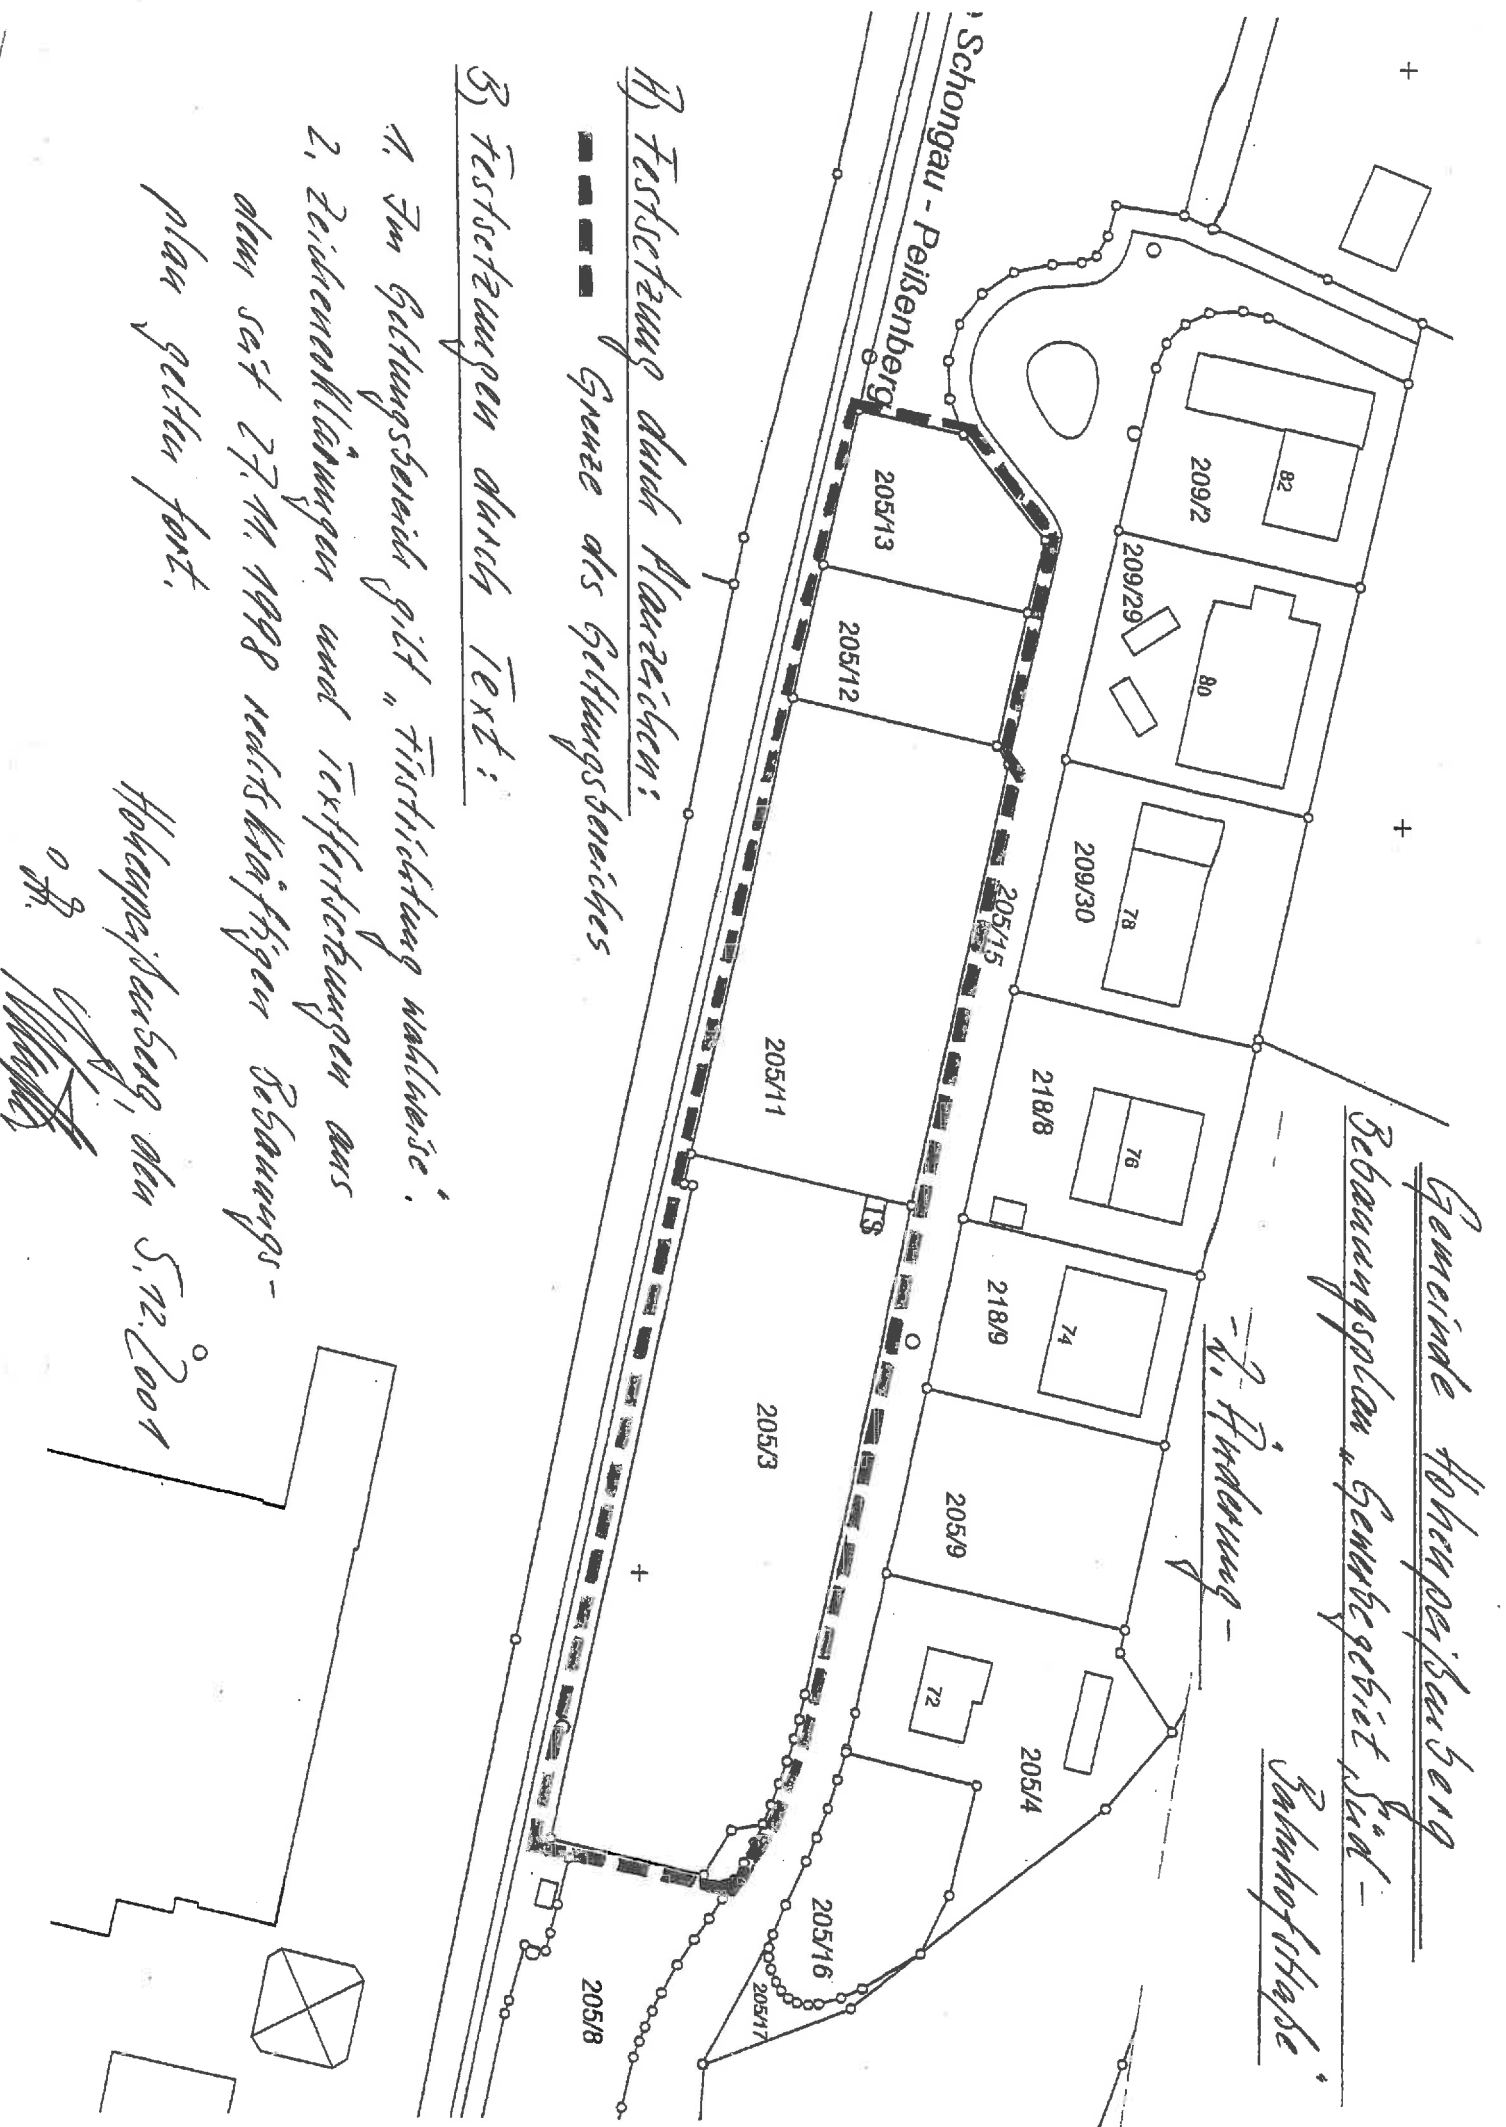 Gemeinde Hohenpeißenberg
Bebauungsplan „Gewerbegebiet Süd -
Bahnhofstraße"
- 2. Änderung -
82
209/2
209/29
80
209/30
78
218/8
76
218/9
74
205/9
72
205/4
205/16
205/17
205/8
205/15
Schongau - Peißenberg
205/13
205/12
205/11
TS
205/3
A) Festsetzung durch Planzeichen:
Grenze des Geltungsbereiches
B) Festsetzungen durch Text:
1. Im Geltungsbereich gilt „Firstrichtung wahlweise".
2. Zeichenerklärungen und Textfestsetzungen aus
dem seit 27.11.1998 rechtskräftigen Bebauungs-
plan gelten fort.
Hohenpeißenberg, den 5.12.2001